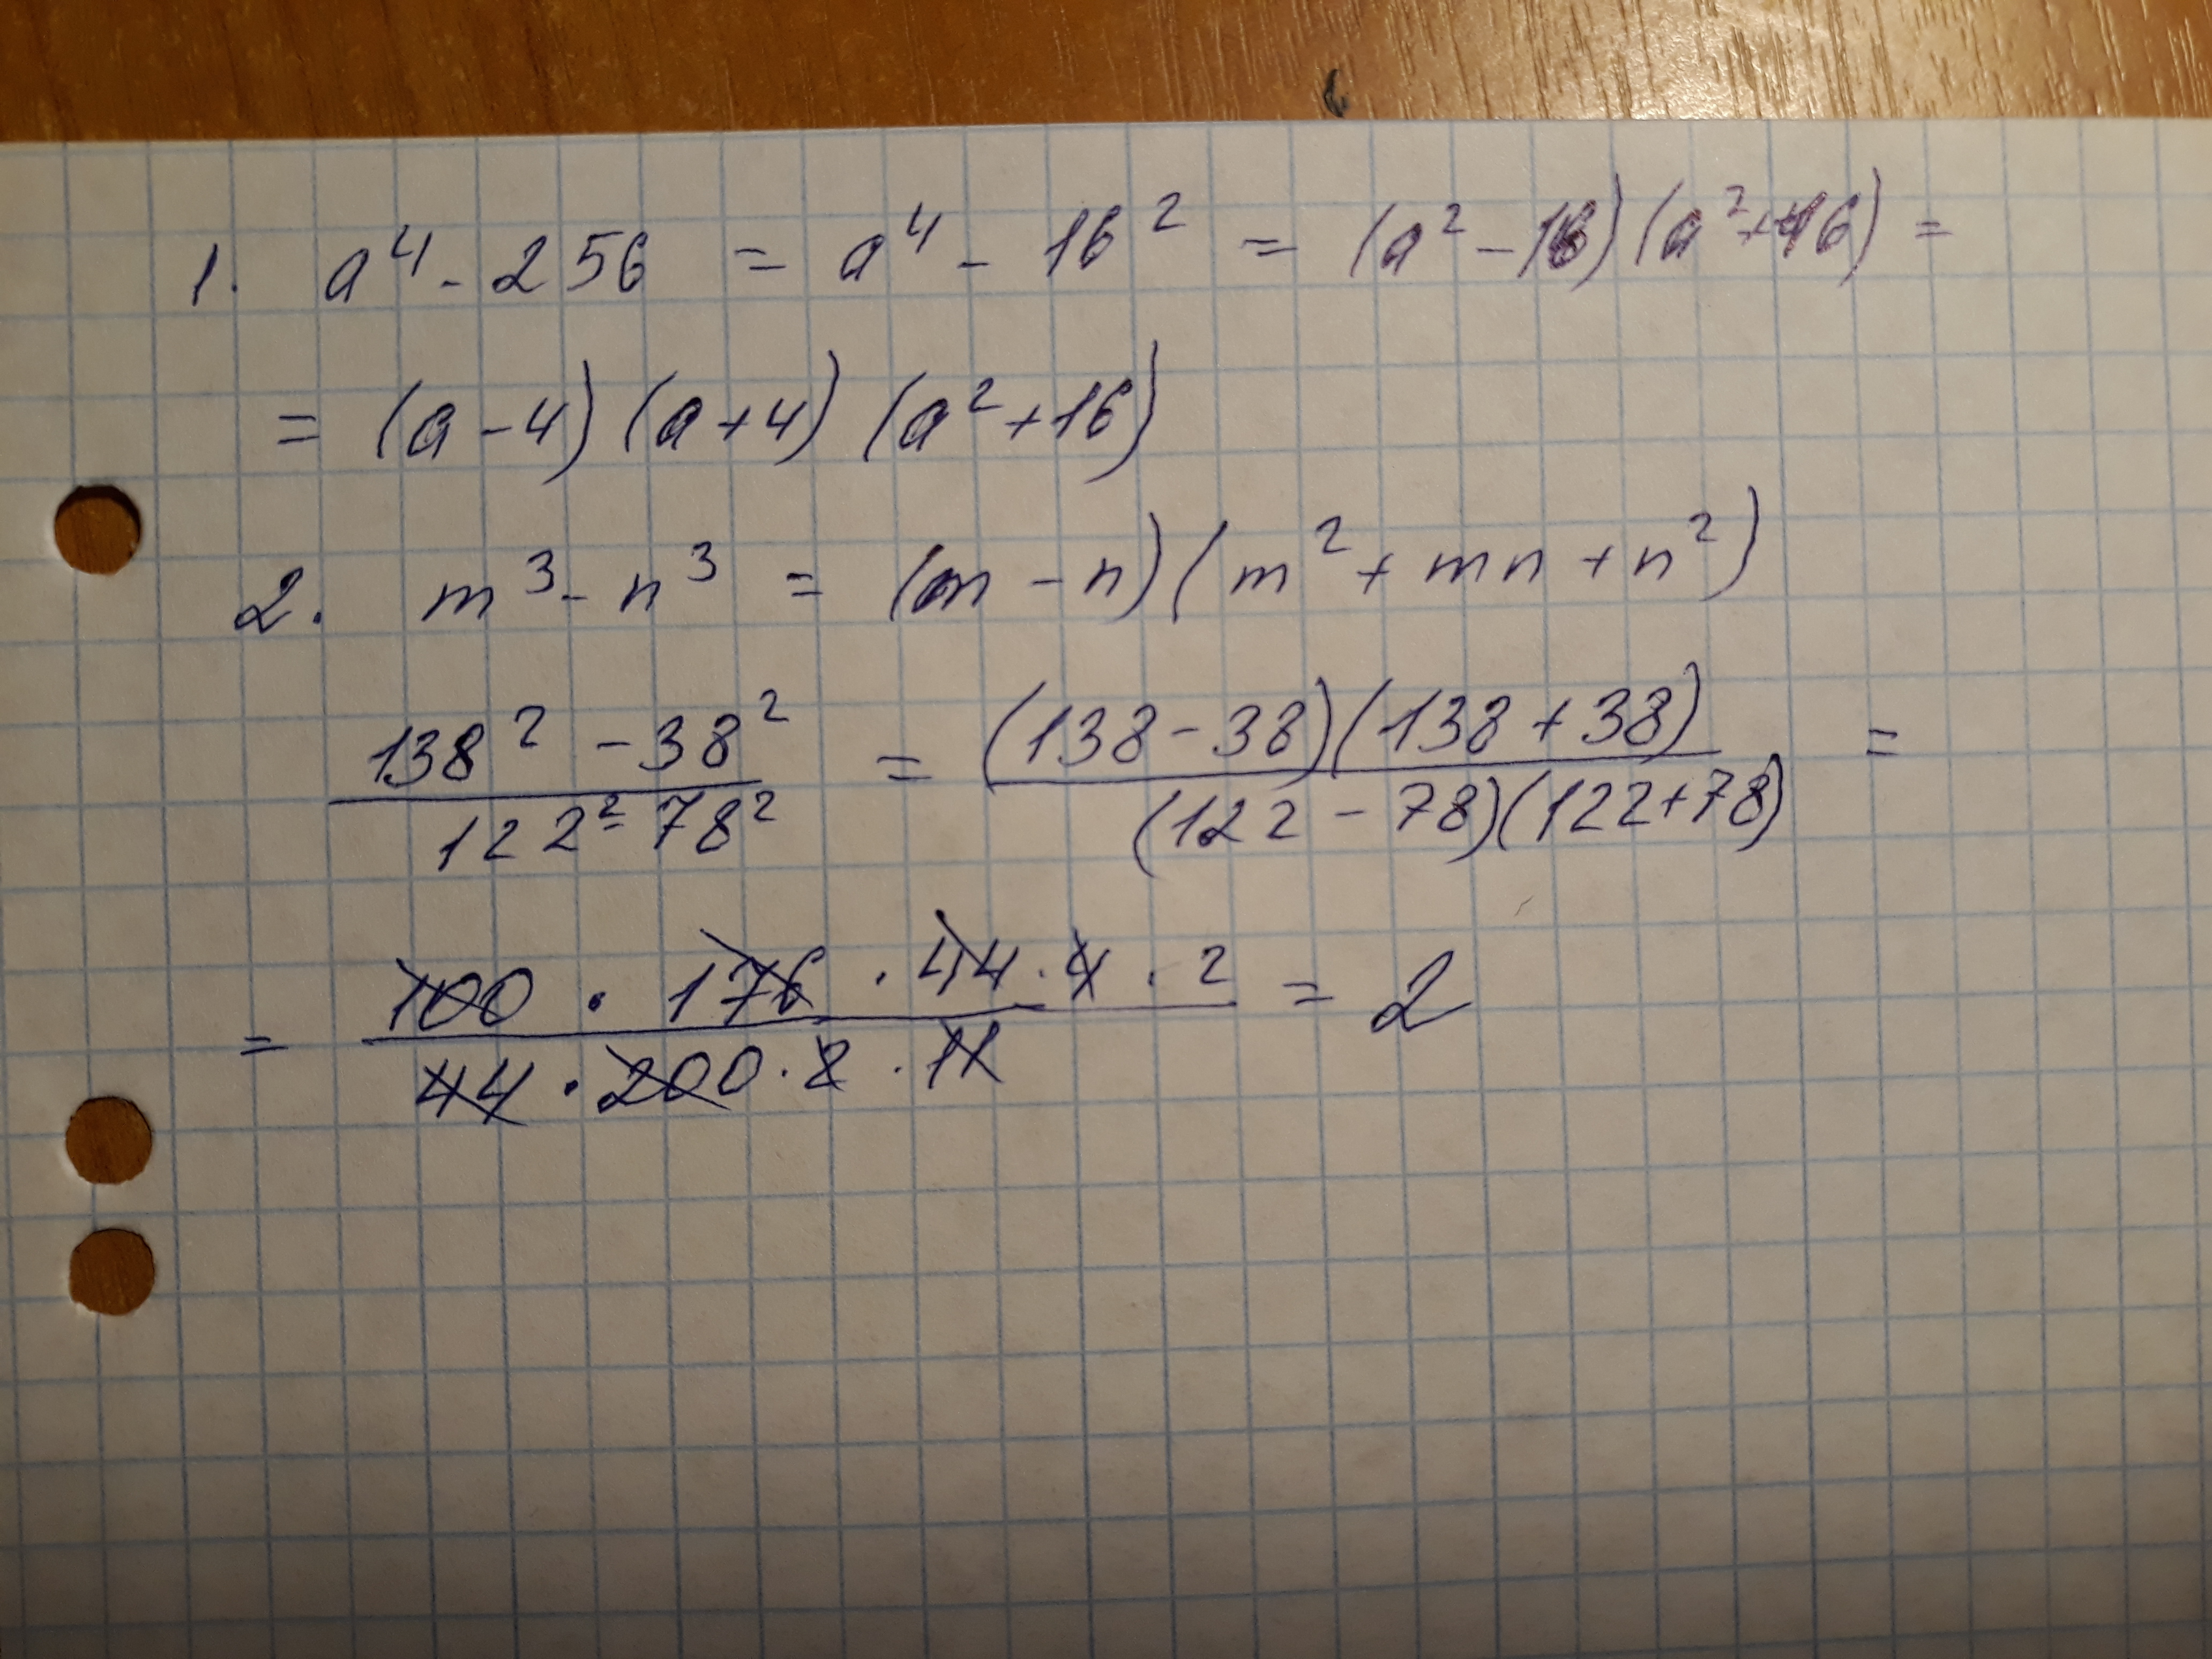 1. a⁴ - 256 = a⁴ - 16² = (a² - 16)(a² + 16) =
= (a - 4)(a + 4)(a² + 16)
2. m³ - n³ = (m - n)(m² + mn + n²)
138² - 38² / 122² - 78² = (138 - 38)(138 + 38) / (122 - 78)(122 + 78) =
= 100 · 176 · 44 · 4 · 2 / 44 · 200 · 2 · 11 = 2